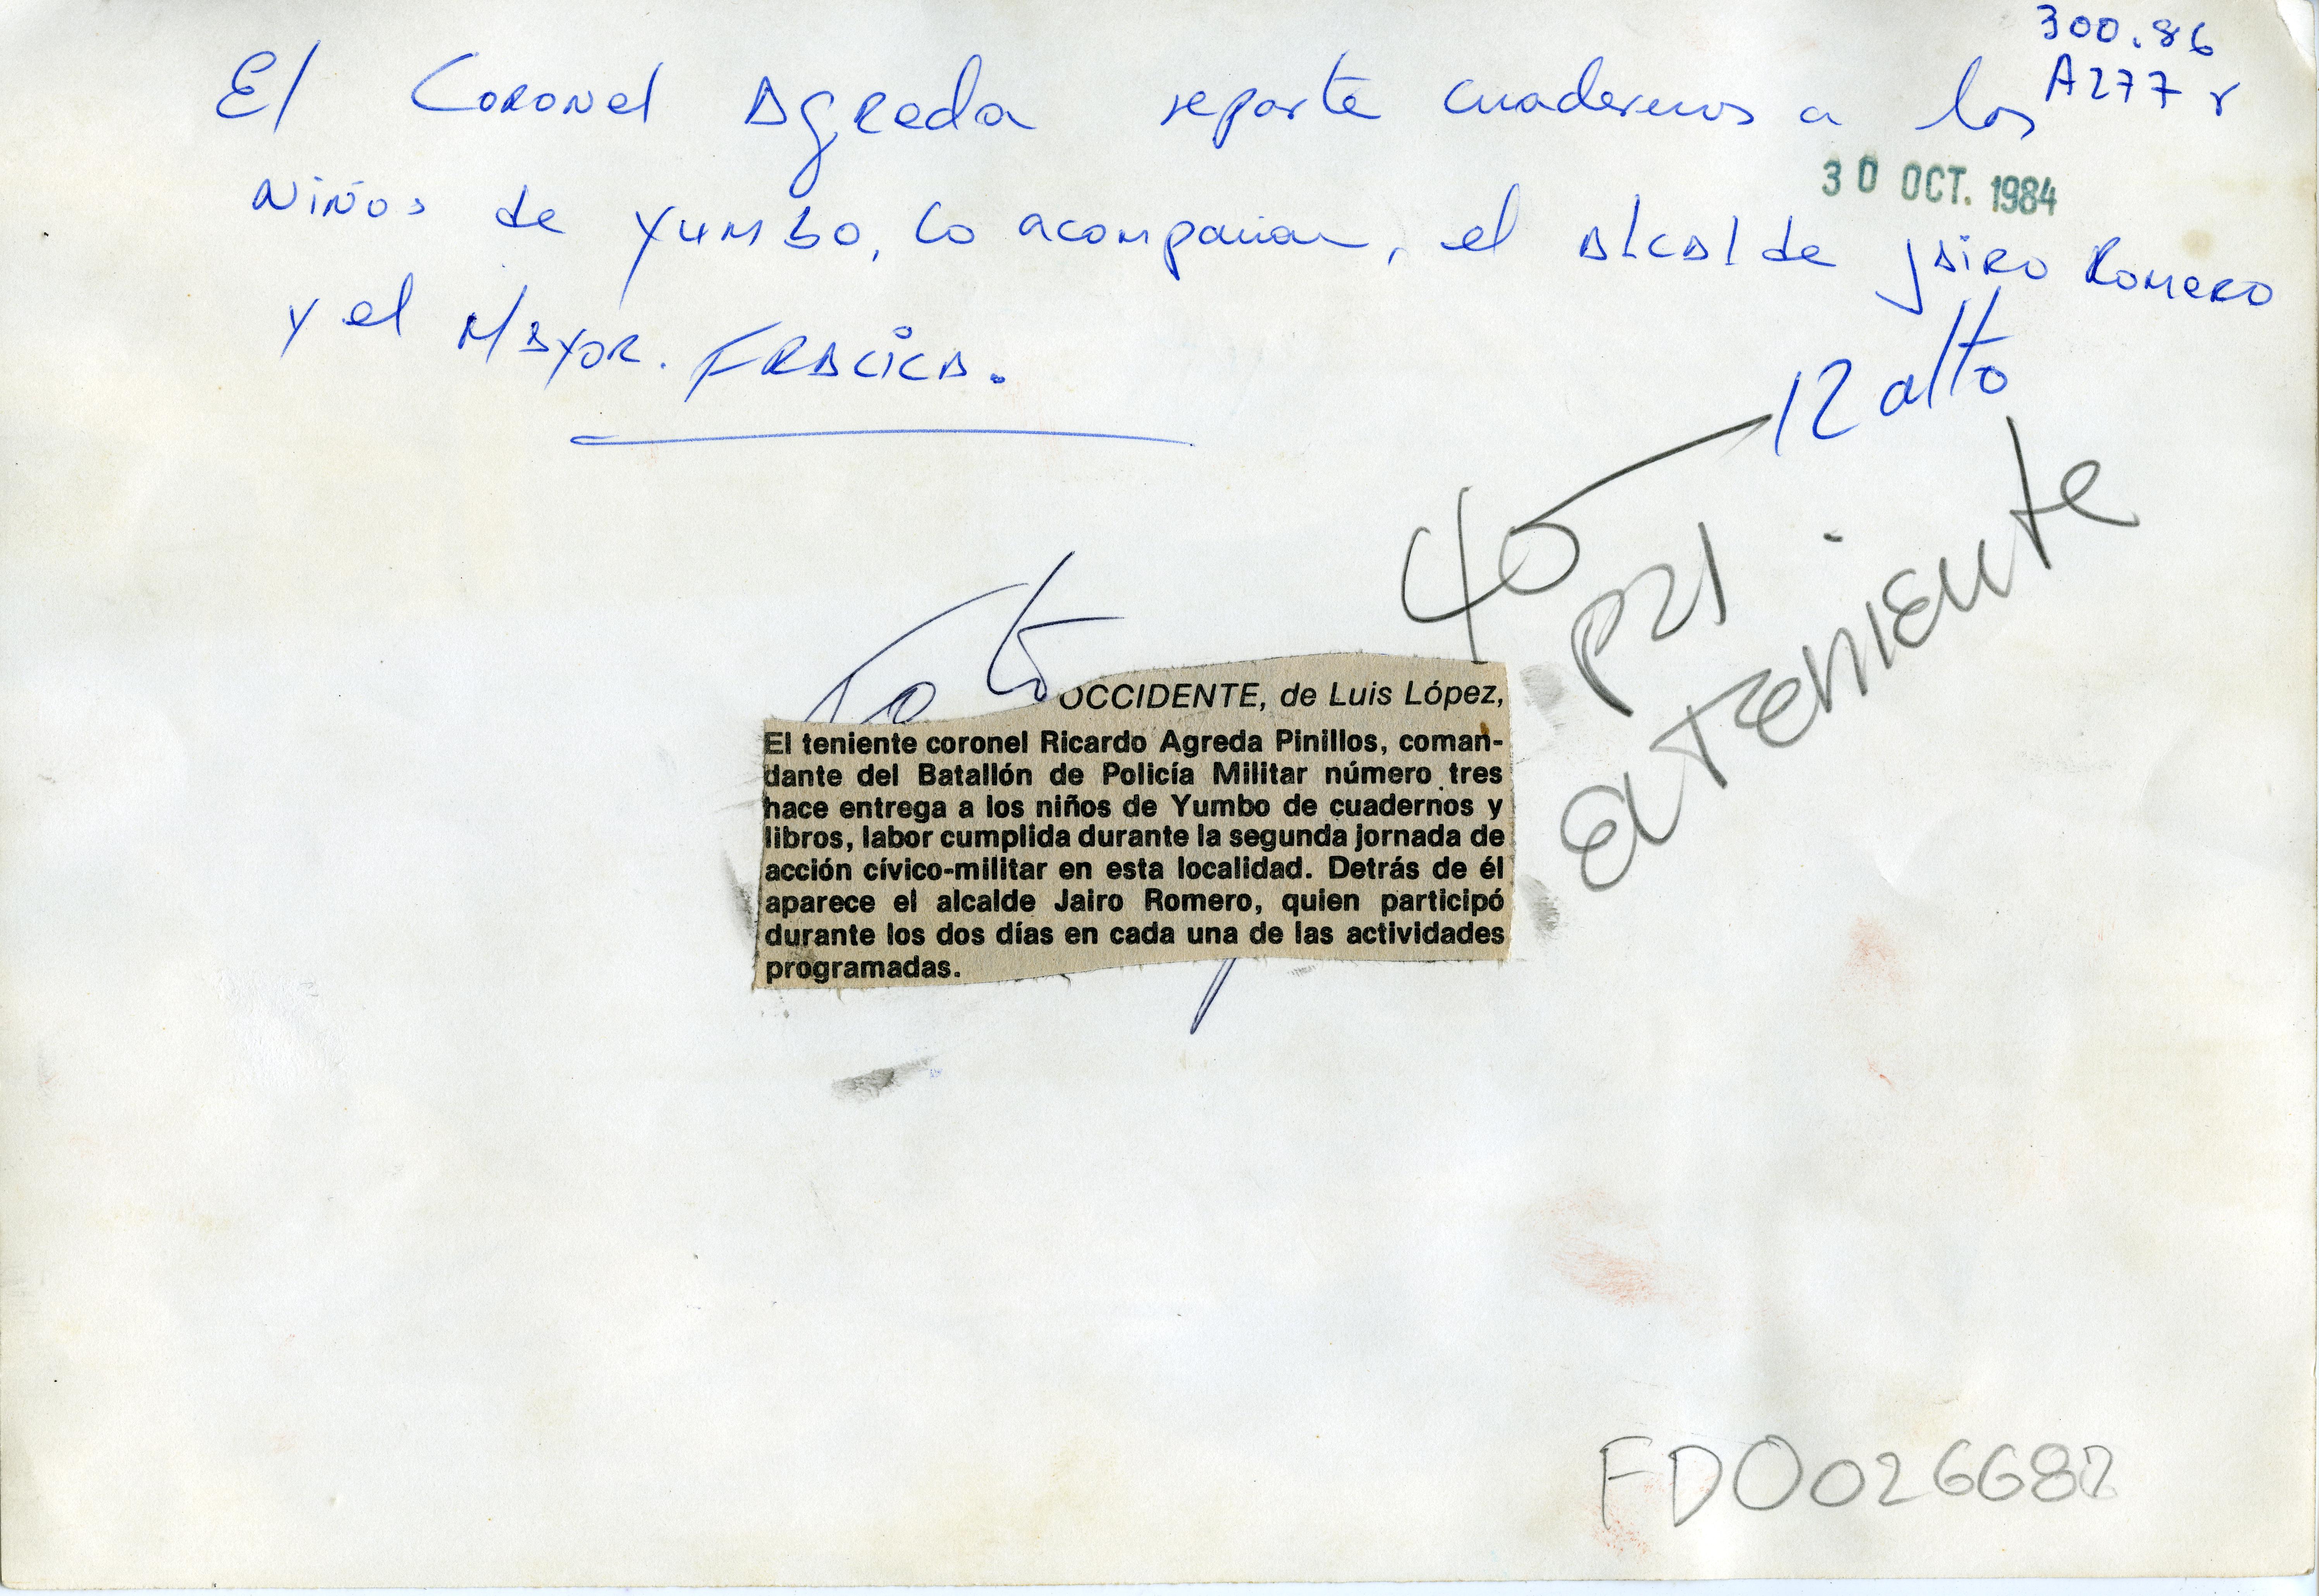 300.86
A277r
El Coronel Agreda reparte cuadernos a los
30 OCT. 1984
niños de Yumbo, lo acompañan, el alcalde Jairo Romero
y el Mayor. Fracica.
12 alto
40
P21
El Teniente
OCCIDENTE, de Luis López,
El teniente coronel Ricardo Agreda Pinillos, coman-
dante del Batallón de Policía Militar número tres
hace entrega a los niños de Yumbo de cuadernos y
libros, labor cumplida durante la segunda jornada de
acción cívico-militar en esta localidad. Detrás de él
aparece el alcalde Jairo Romero, quien participó
durante los dos días en cada una de las actividades
programadas.
FD0026682